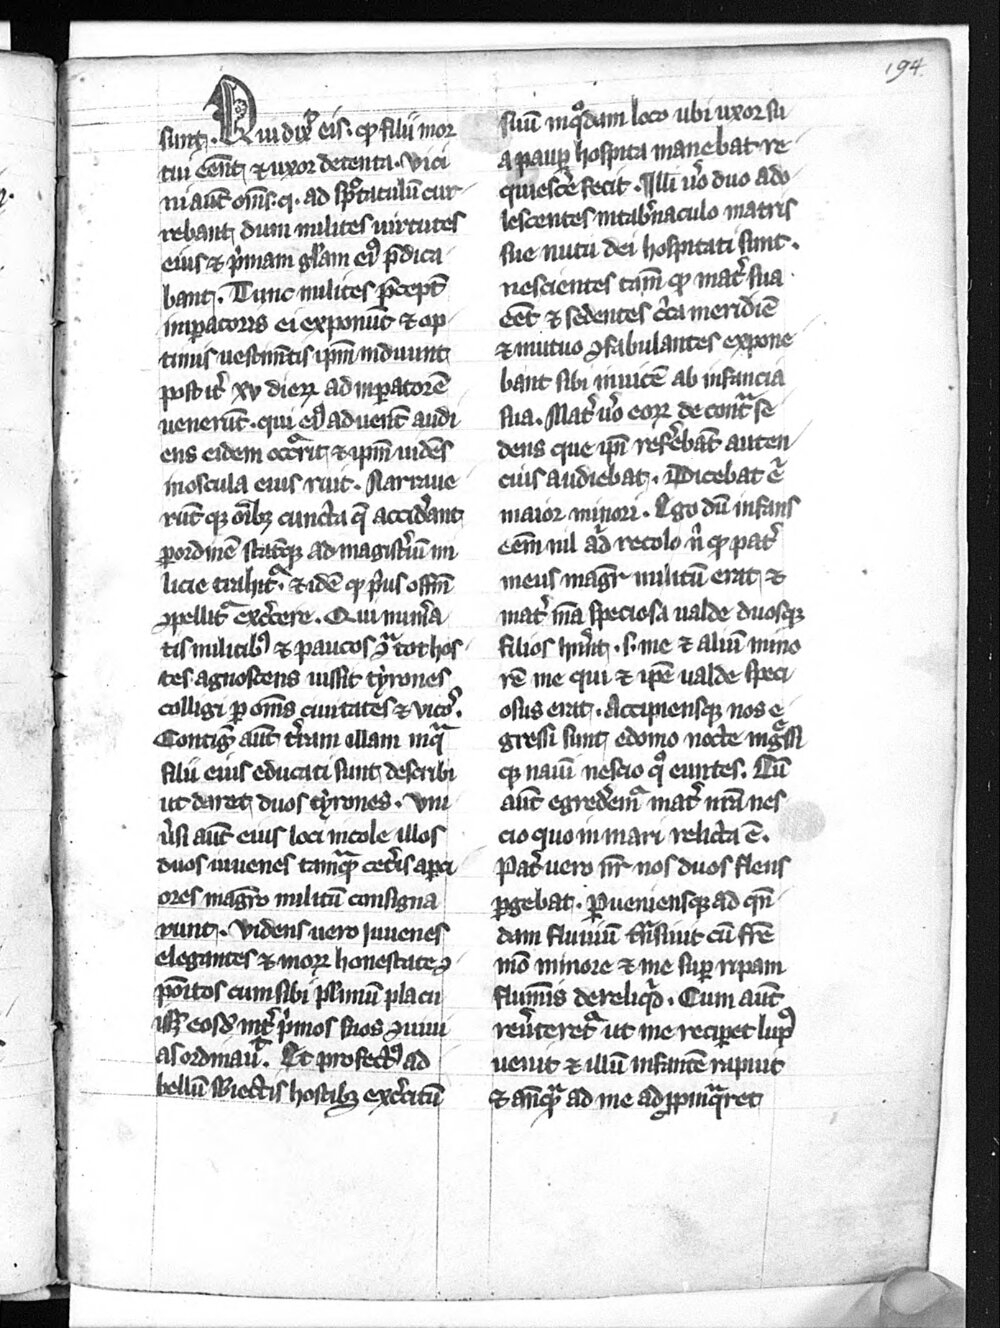 194
sunt. Qui dix̄ eis. ꝙ filii mor
tui eēnt ⁊ uxor detenta. Vici
ni aūt om̄s. q̇. ad spectaculū cur
rebant dum milites uirtutes
eius ⁊ p̄mam gl̄am eiꝰ p̄dica
bant. Tunc milites p̄ceptū
imꝑatoris ei exponūt ⁊ op
timis uestim̄tis ip̄m induunt
post it̄ xv dieꝝ ad inꝑatorē
uenerūt. qui eiꝰ aduentū audi
ens eidem occ̄rit ⁊ ip̄m uidēs
in oscula eius ruit. Narraue
rūt qꝫ oībꝫ cuncta q̄ accid̄ant
ꝑ ordinē statīqꝫ ad magist̄ium mi
licie trahit̄. ⁊ idē ꝙ p̄us offm̄
ꝯpellit̄ exc̄cere. Qui num̄a
tis militibꝰ ⁊ paucos ꝯ̄ tot hos
tes agnoscens iussit tyrones
colligi ꝑ om̄s ciuitates ⁊ vicoˢ.
Contigit aūt t̄ram illam in q̄
filii eius educati sunt describi
ut daret duos tyrones. Vni
u̇si aūt eius loci incole illos
duos iuuenes tamq̄ꝫ cet̄is apci
ores magr̄o militū consigna
runt. Videns uero iuuenes
elegantes ⁊ moꝝ honestate ꝯ
poītos cum sibi plimū placu
iss̄ eosd̄ int̄ p̄mos suos ꝯuiui
as ordinauit. Et profectꝰ ad
bellū sbiectis hostibꝫ exc̄citū
suū in q̊dam loco ubi uxor su
a pauꝑ hospita manebat re
quiesc̄e fecit. Illi u̇o duo ado
lescentes in tab̄naculo matris
sue nutu dei hospitati sunt.
nescientes tam̄ ꝙ mat̄ sua
eēt ⁊ sedentes c̄ca meridiē
⁊ mutuo ꝯfabulantes expone
bant sibi inuicē ab infancia
sua. Mat̄ u̇o eoꝝ de cont̄ se
dens que ip̄i ref̄ebāt auten
cius audiebat. Dicebat ē
maior minori. Ego dū infans
eēm nil ad̄ recolo n̄ ꝙ pat̄
meus magr̄ militū erat ⁊
mat̄ m̄a speciosa ualde duosqꝫ
filios h̄uit. s. me ⁊ aliū mino
rē me qui ⁊ ip̄e ualde speci
osus erat. Accipiensqꝫ nos e
gressi sunt edomo nocte ingr̄ssi
qꝫ naui nescio q̊ euntes. Cū
aūt egred̄emꝰ mat̄ nr̄a nes
cio quo in mari relicta ē.
Pat̄ vero nr̄ nos duos flens
ꝑgebat. ꝑueniensqꝫ ad qn̄
dam fluuiū tn̄siuit cū fr̄e
mō minore ⁊ me super ripam
flum̄is dereliqᷓd. Cum aūt
reu̇teret̄ ut me reciꝑet lupꝰ
uenit ⁊ illū infantē rapuit
⁊ an̄q̄ ad me adꝓpinq̄ret